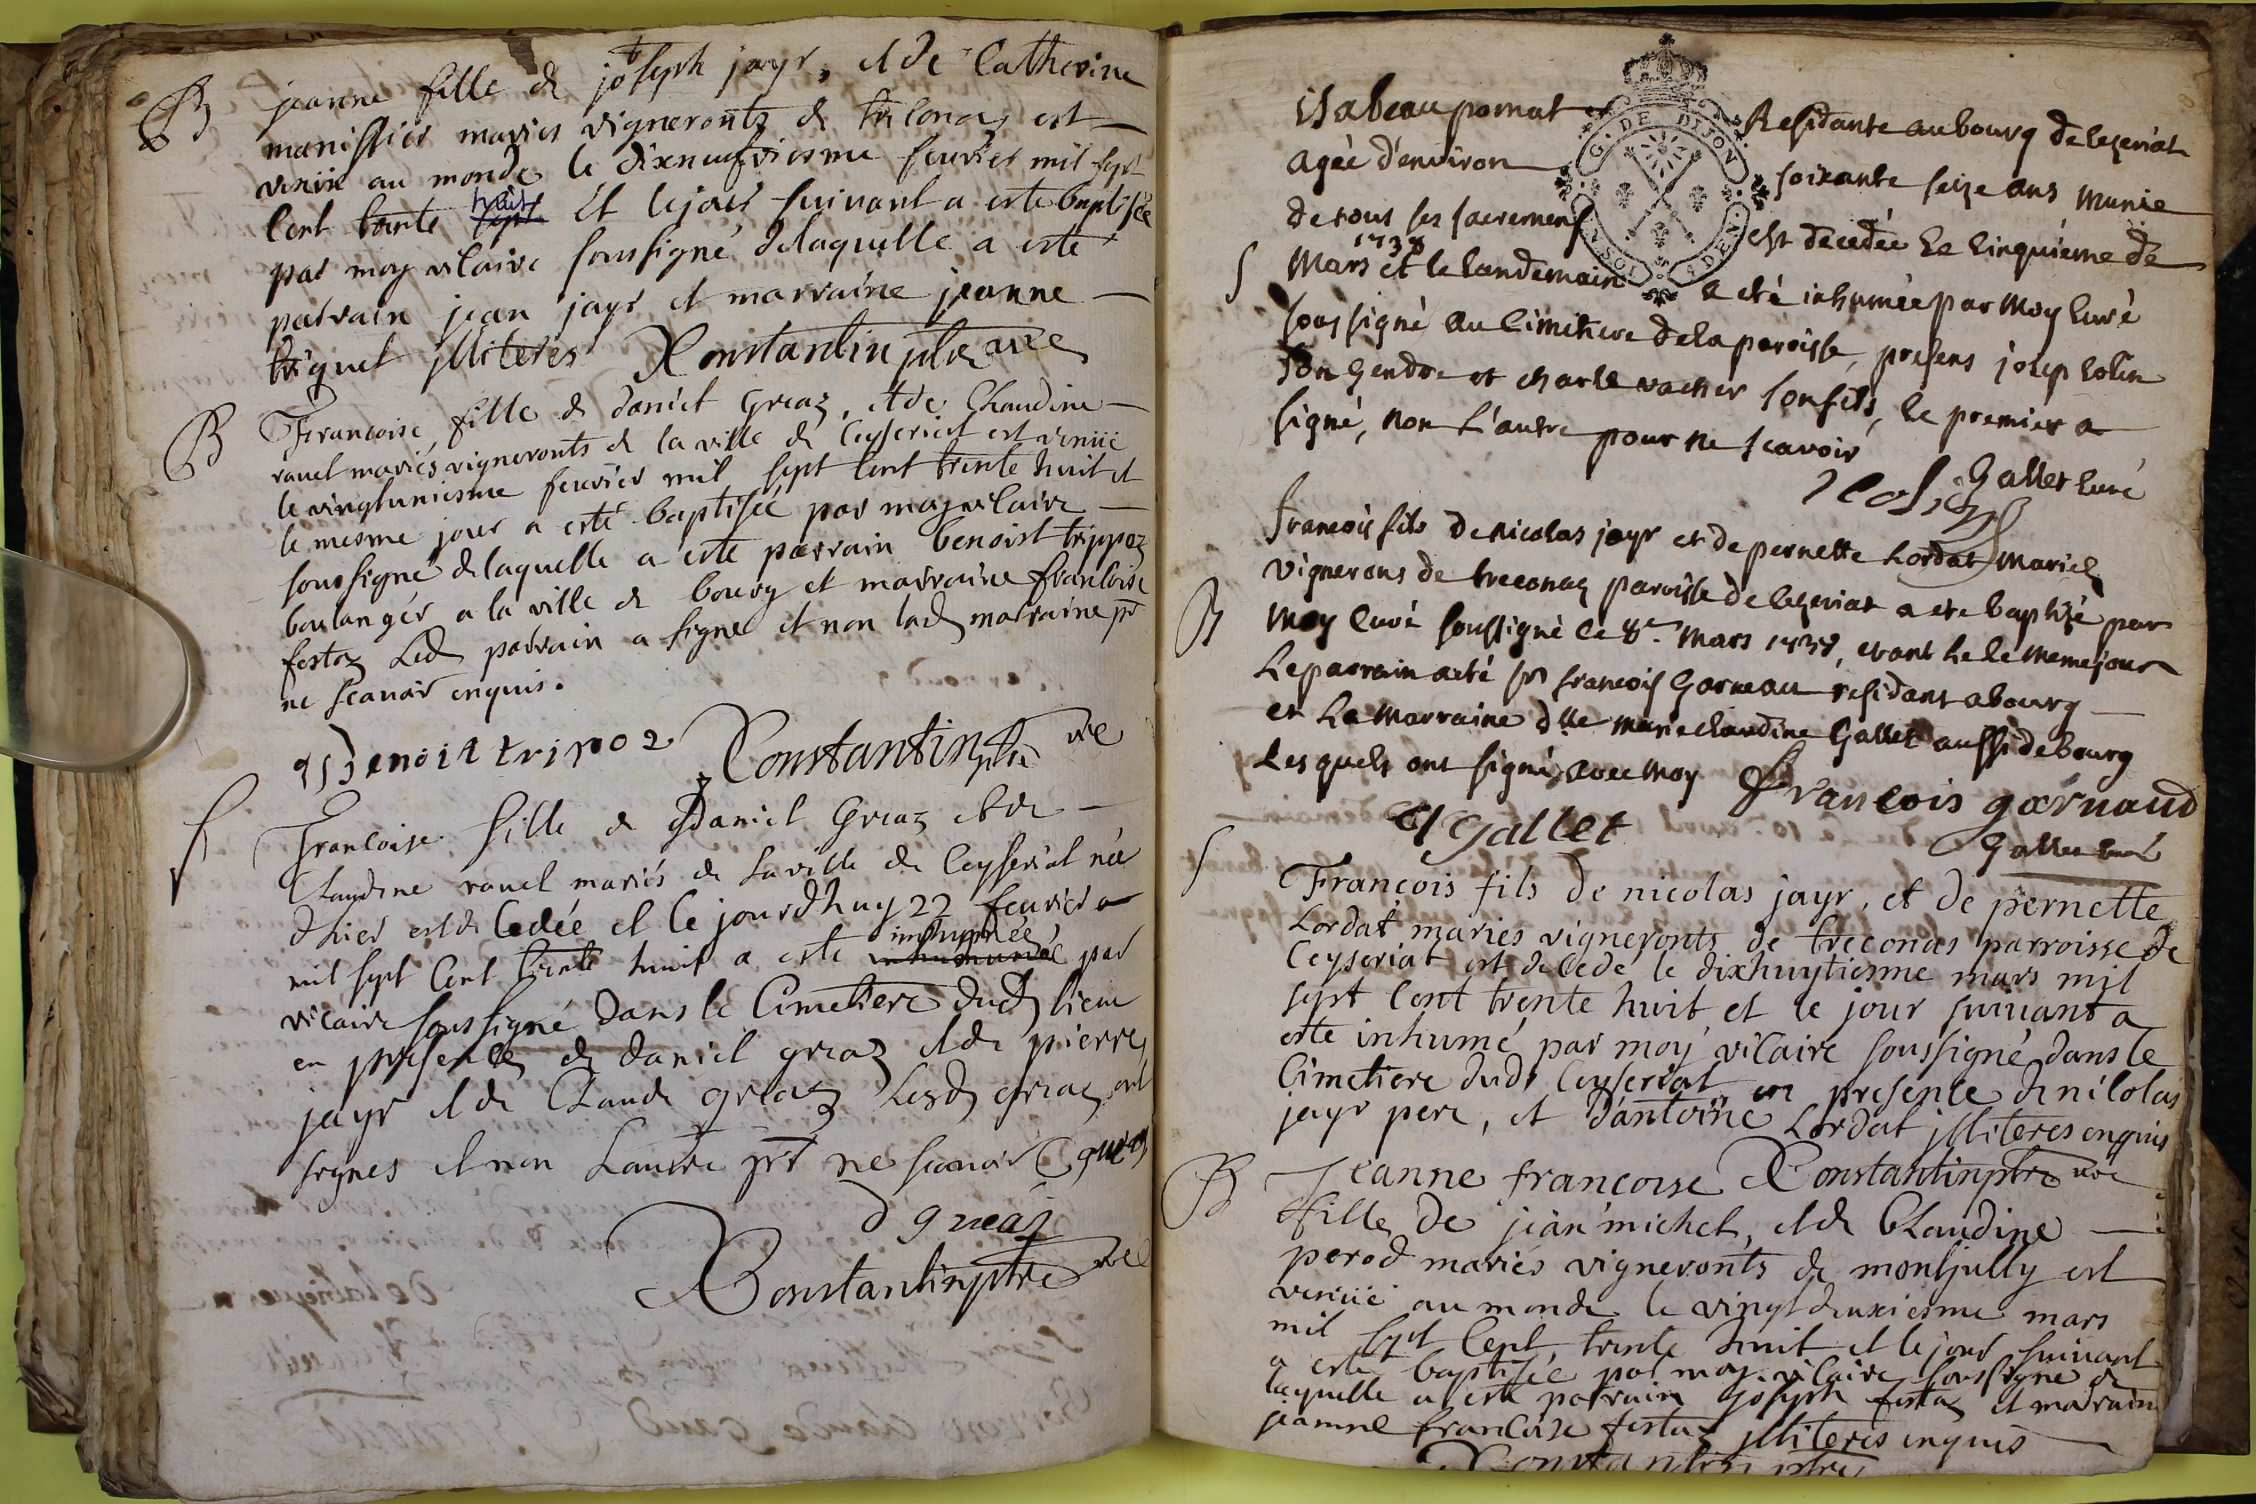 B
jeanne fille de joseph jayr, et de Catherine
manissier maries vignerontz de treconas est
venüe au monde le dixneufviesme feuvrier mil sept
Cent trente huit et le jour suivant a este baptisée
par moy vicaire soussigné de laquelle a esté
parrain jean jayr et marraine jeanne
triquet illiteres Constantin ptre vre
B
Francoise fille de daniel Greaz, et de Claudine
ravel mariés vigneronts de la ville de Ceyseriat est venüe
le vingtuniesme feuvrier mil sept Cent trente huit et
le mesme jour a esté baptisée par moy vicaire
soussigné de laquelle a esté parrain benoist trippoz
boulanger a la ville de bourg et marraine francoise
festaz Led parrain a signé et non lad marraine pr
ne scavoir enquis.
Benoit tripoz
Constantin ptre vre
S
Francoise fille de Daniel Greaz et de
Claudine ravel mariés de la ville de Ceyseriat née
d'hier est decedée et ce jourdhuy 22 feuvrier
mil sept Cent trente huit a este inhumée par
vicaire soussigné dans le Cimetiere dud lieu
en presence de daniel greaz et de pierre
jayr et de Claude greaz Lesd greaz ont
signes et non Lautre pr ne scavoir C greaz
d greaz
Constantin ptre vre
isabeau pornat Residante au bourg de lezeriat
agée d'environ soixante seize ans munie
de tous ses sacremens est decedée le Cinquieme de
1738
S
Mars et le landemain a eté inhumée par moy Curé
soussigné au Cimetiere de la paroisse, presens josep Colin
son gendre et Charle vacher son fils, le premier a
signé, non L'autre pour ne scavoir
Gallet Curé
J Colin
francois fils de nicolas jayr et de pernette Lordat mariés
vignerons de treconas paroisse de lezeriat a ete baptizé par
B
moy Curé soussigné le 8e Mars 1738, etant né le meme jour
Le parrain a eté sr francois Garneau residant a bourg
et La marraine dlle marie claudine Gallet aussi de bourg
Lesquels ont signés avec moy francois garnaud
Gallet
Gallet Curé
S
François fils de nicolas jayr, et de pernette
Lordat mariés vigneronts de treconas parroisse de
Ceyseriat est decedé le dixhuytiesme mars mil
sept Cent trente huit et le jour suivant a
esté inhumé par moy vicaire soussigné dans le
Cimetiere dudt Ceyseriat en presence de nicolas
jayr pere, et d'antoine Lordat illiteres enquis
Constantin ptre vre
B
Jeanne francoise
fille de jean michel, et de Claudine
perod mariés vigneronts de montjully est
venüe au monde le vingt deuxiesme mars
mil sept Cent trente huit et le jour suivant
a esté baptisée par moy vicaire soussigné de
laquelle a esté parrain joseph festaz et marraine
jeanne francoise festaz illiteres enquis
Constantin ptre
G. DE DIJON